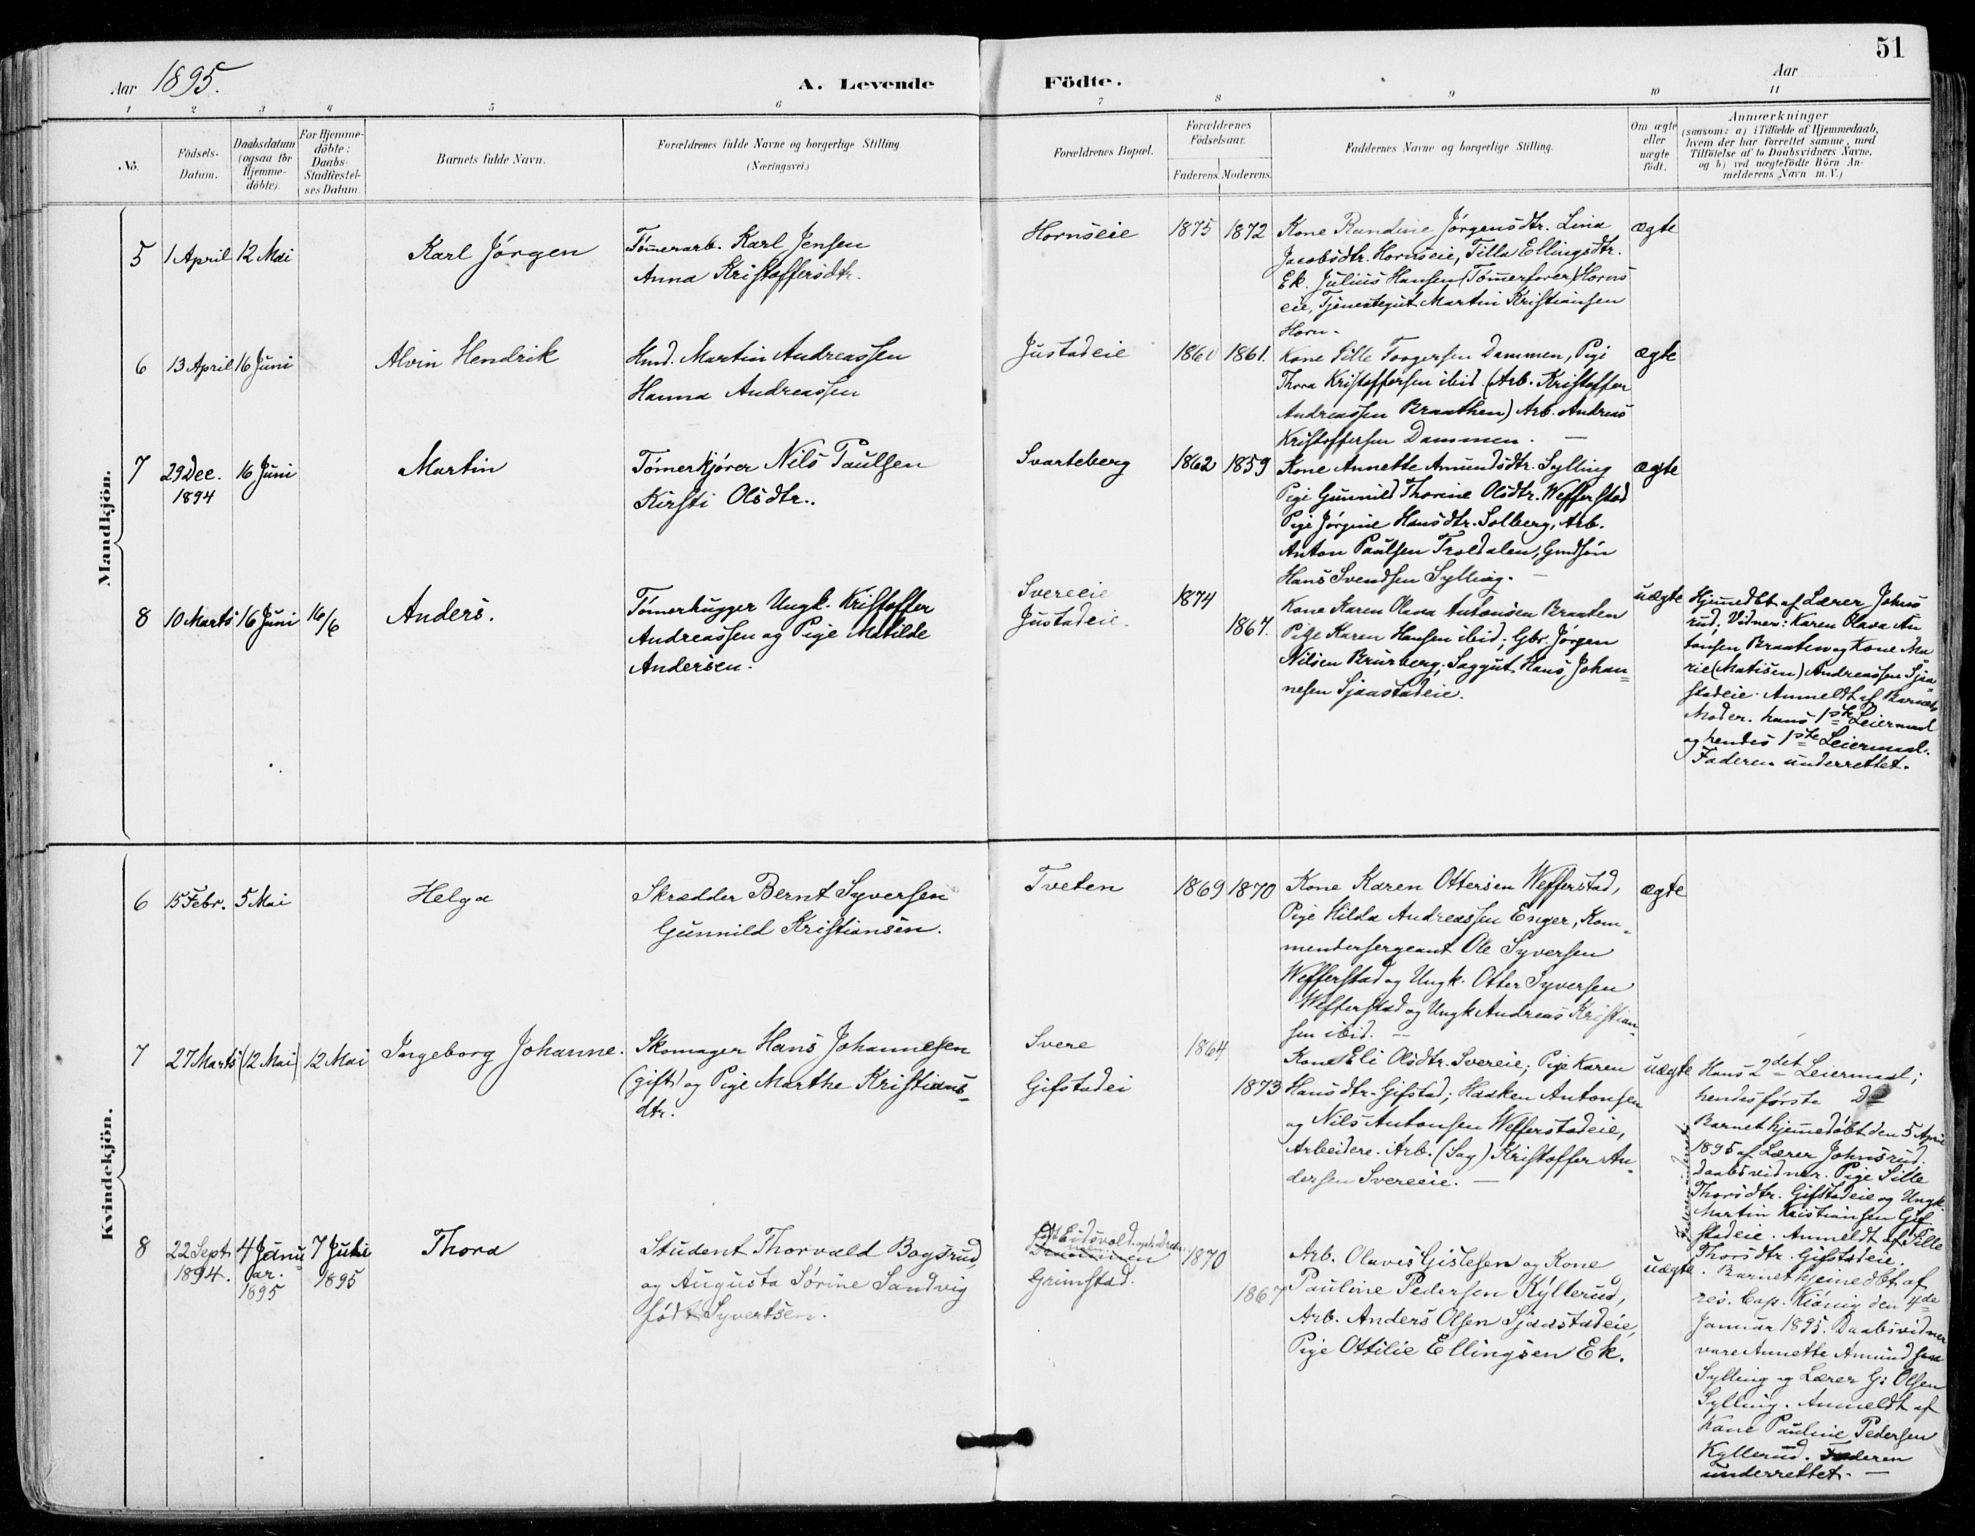 51
Aar 1895.
A. Levende Födte.
Aar
1 2 3 4 5 6 7 8 9 10 11
No.
Födsels-
Datum.
Daabsdatum
(ogsaa for
Hjemme-
döbte).
For Hjemme-
döbte:
Daabs-
Stadfæstel-
ses Datum.
Barnets fulde Navn.
Forældrenes fulde Navne og borgerlige Stilling
(Næringsvei.)
Forældrenes Bopæl.
Forældrenes
Födselsaar.
Faderens. Moderens.
Faddernes Navne og borgerlige Stilling.
Om ægte
eller
uægte
födt.
Anmærkninger
(saasom: a) i Tilfælde af Hjemmedaab,
hvem der har forrettet samme, med
Tilföielse af to Daabsvidners Navne,
og b) ved uægtefödte Börn An-
melderens Navn m. V.)
Mandkjön.
5
1 April
12 Mai
Karl Jørgen
Tømerarb. Karl Jensen
Anna Kristoffersdtr.
Hornseie
1875
1872
Kone Randine Jørgensdtr. Lina
Jacobsdtr. Hornseie, Tilla Ellingsdtr.
Ek. Julius Hansen (Tømerfører) Horns
eie, Tjenestegut Martin Kristiansen
Horn.
ægte
6
13 April
16 Juni
Alvin Hendrik
Hmd. Martin Andreassen
Hanna Andreassen
Justadeie
1861.
Kone Sille Torgersen Dammen, Pige
Thora Kristoffersen ibid. (Arb. Kristoffer
Andreassen Braathen) Arb. Andreas
Kristoffersen Dammen. —
ægte
7
29 Dec.
1894
16 Juni
Martin
Tømerkjører Nils Paulsen
Kirsti Olsdtr.
Svarteberg
1862
1859
Kone Annette Amundsdtr. Sylling
Pige Gunnild Thorine Olsdtr. Wefferstad
Pige Jørgine Hansdtr. Solberg, Arb.
Anton Paulsen Troldalen, Gmdsøn
Hans Svendsen Sylling. —
ægte
8
10 Marts
16 Juni
16/6
Anders.
Tømerhugger Ungk. Kristoffer
Andreassen og Pige Matilde
Andersen.
Svereeie
Justadeie.
1874
1867.
Kone Karen Olava Antonsen Braaten
Pige Karen Hansen ibid; Gbr. Jørgen
Nilsen Brurberg; Saggut Hans Johan=
nesen Sjaastadeie.
uægte
Hjemdbt. af Lærer Johns
rud. Vidner: Karen Olava An
tonsen Braaten og Kone Ma
rie (Matisen) Andreassen Sjaa
stadeie. Anmeldt af Barnets
Moder. hans 1ste Leiermaal
og hendes 1ste Leiermaal.
Faderen underrettet.
Kvindekjön.
6
15 Febr.
5 Mai
Helga
Skrædder Bernt Syversen
Gunnild Kristiansen.
Tveten
1869
1870
Kone Karen Ottersen Wefferstad,
Pige Hilda Andreassen Enger, Kom-
mendersergeant Ole Syversen
Wefferstad og Ungk. Otter Syversen
Wefferstad og Ungk Andreas Kristian-
sen ibid. —
ægte
7
27 Marts
(12 Mai)
12 Mai
Ingeborg Johanne.
Skomager Hans Johannesen
(gift) og Pige Marthe Kristians-
dtr.
Svere
Gifstadei
1864
1873
Kone Eli Olsdtr. Svereie; Pige Karen
Hansdtr. Gifstad; Haaken Antonsen
og Nils Antonsen Wefferstadeie,
Arbeidere. Arb. (Sag) Kristoffer An-
dersen Svereeie. —
uægte
Hans 2det Leiermaal;
hendes første Do
Barnet hjemedøbt den 5 April
1895 af Lærer Johnsrud.
Daabsvidner. Pige Sille
Thorsdtr. Gifstadeie og Ungk.
Martin Kristiansen Gif
stadeie. Anmeldt af Sille
Thorsdtr. Gifstadeie.
8
22 Sept.
1894.
4 Janu
ar.
1895
7 Juli
1895
Thora
Student Thorvald Bagsrud
og Augusta Sørine Sandvig
født Syvertsen.
Eidsvold
Grimstad.
1870
1867
Arb. Olaves Gislesen og Kone
Pauline Pedersen Kylterud,
Arb. Anders Olsen Sjaastadeie,
Pige Ottilie Ellingsen Ek.
uægte
Barnet hjemedbt. af
res. Cap. Kiönig den 4de
Januar 1895. Daabsvidner
vare Annette Amundsen
Sylling og Lærer G. Olsen
Sylling. Anmeldt af
Kone Pauline Pedersen
Kyllerud. Faderen
underrettet. —